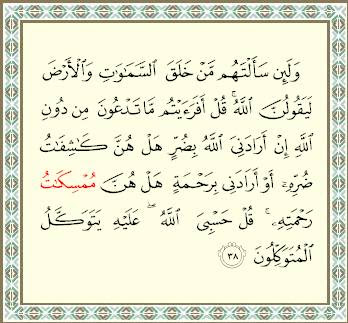 وَلَئِن سَأَلْتَهُم مَّنْ خَلَقَ السَّمَٰوَٰتِ وَالْأَرْضَ
لَيَقُولُنَّ اللَّهُ ۚ قُلْ أَفَرَءَيْتُم مَّا تَدْعُونَ مِن دُونِ
اللَّهِ إِنْ أَرَادَنِيَ اللَّهُ بِضُرٍّ هَلْ هُنَّ كَٰشِفَٰتُ
ضُرِّهِۦٓ أَوْ أَرَادَنِي بِرَحْمَةٍ هَلْ هُنَّ مُمْسِكَٰتُ
رَحْمَتِهِۦ ۚ قُلْ حَسْبِيَ اللَّهُ ۖ عَلَيْهِ يَتَوَكَّلُ
الْمُتَوَكِّلُونَ ٣٨